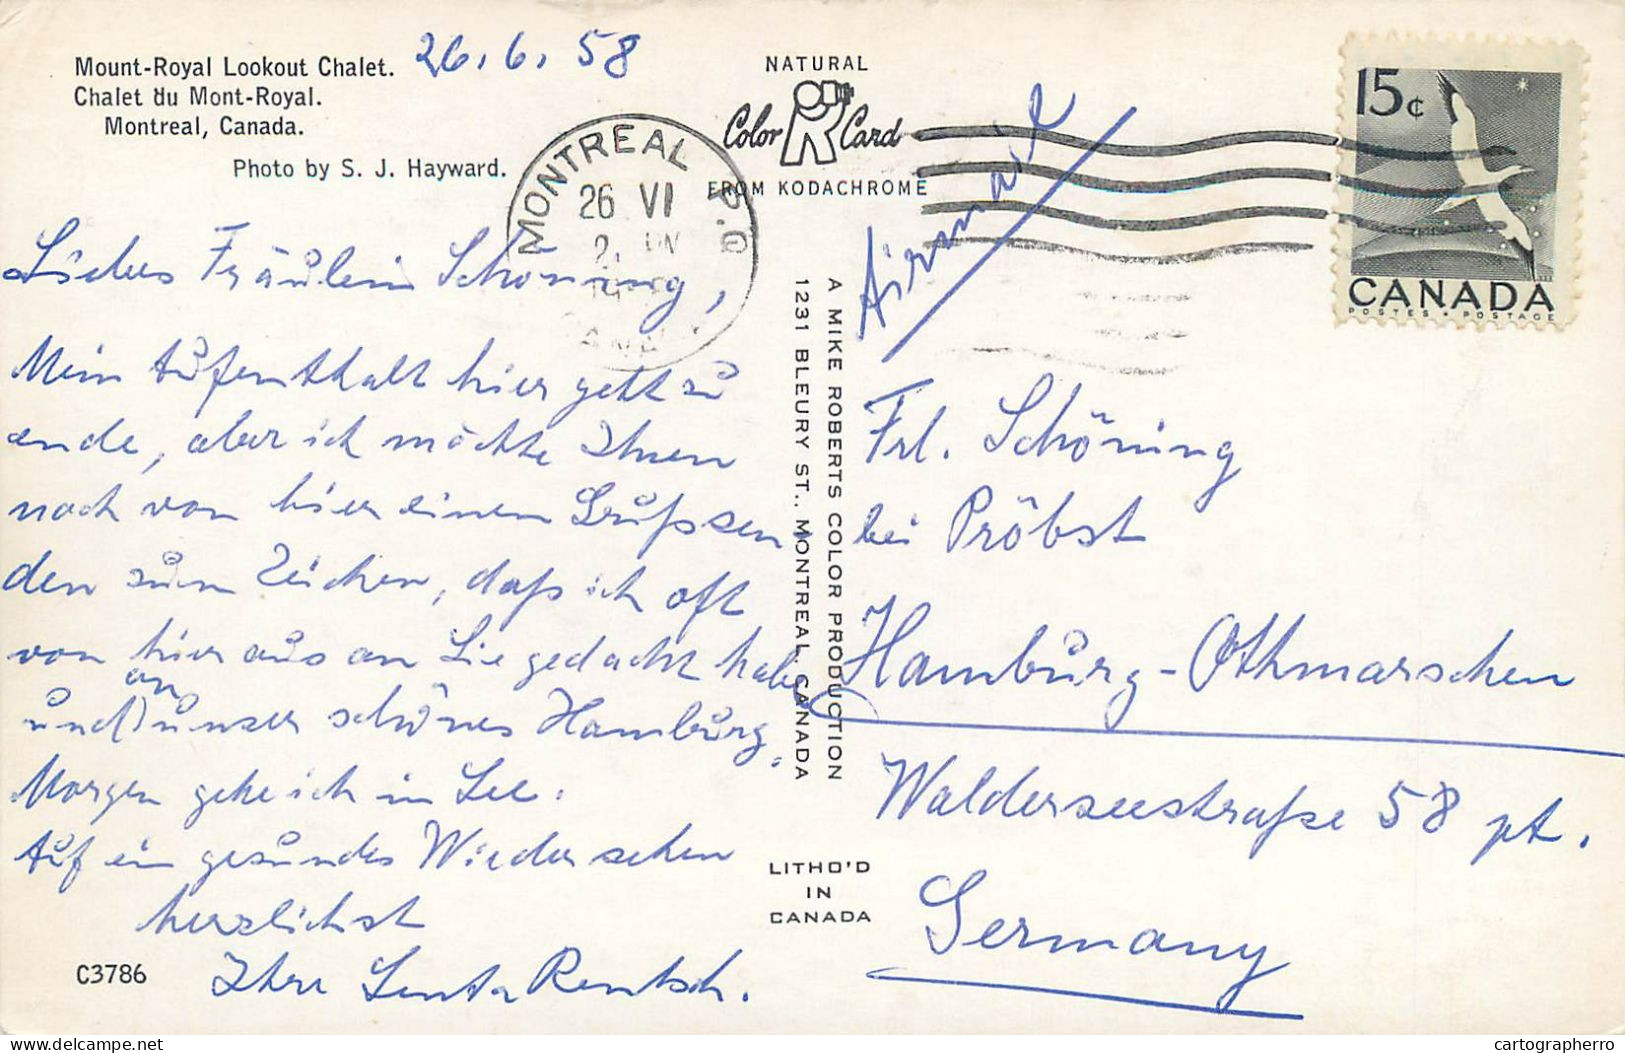 Mount-Royal Lookout Chalet.
Chalet du Mont-Royal.
Montreal, Canada.
Photo by S. J. Hayward.
26.6.58
NATURAL
Color Card
FROM KODACHROME
MONTREAL P.Q
26 VI
2 PM
CANADA
15¢
CANADA
POSTES • POSTAGE
Airmail
Liebes Fräulein Schöning,
Mein Aufenthalt hier geht zu
ende, aber ich möchte Ihnen
noch von hier einen Gruß sen
den zum Zeichen, daß ich oft
von hier aus an Sie gedacht habe
und an unser schönes Hamburg.
Morgen gehe ich in See.
Auf ein gesundes Wiedersehen
herzlichst
Ihre Senta Rentsch.
C3786
A MIKE ROBERTS COLOR PRODUCTION
1231 BLEURY ST., MONTREAL, CANADA
LITHO'D
IN
CANADA
Frl. Schöning
bei Pröbst
Hamburg-Othmarschen
Walderseestraße 58 pt.
Germany
delcampe.net
cartographerro